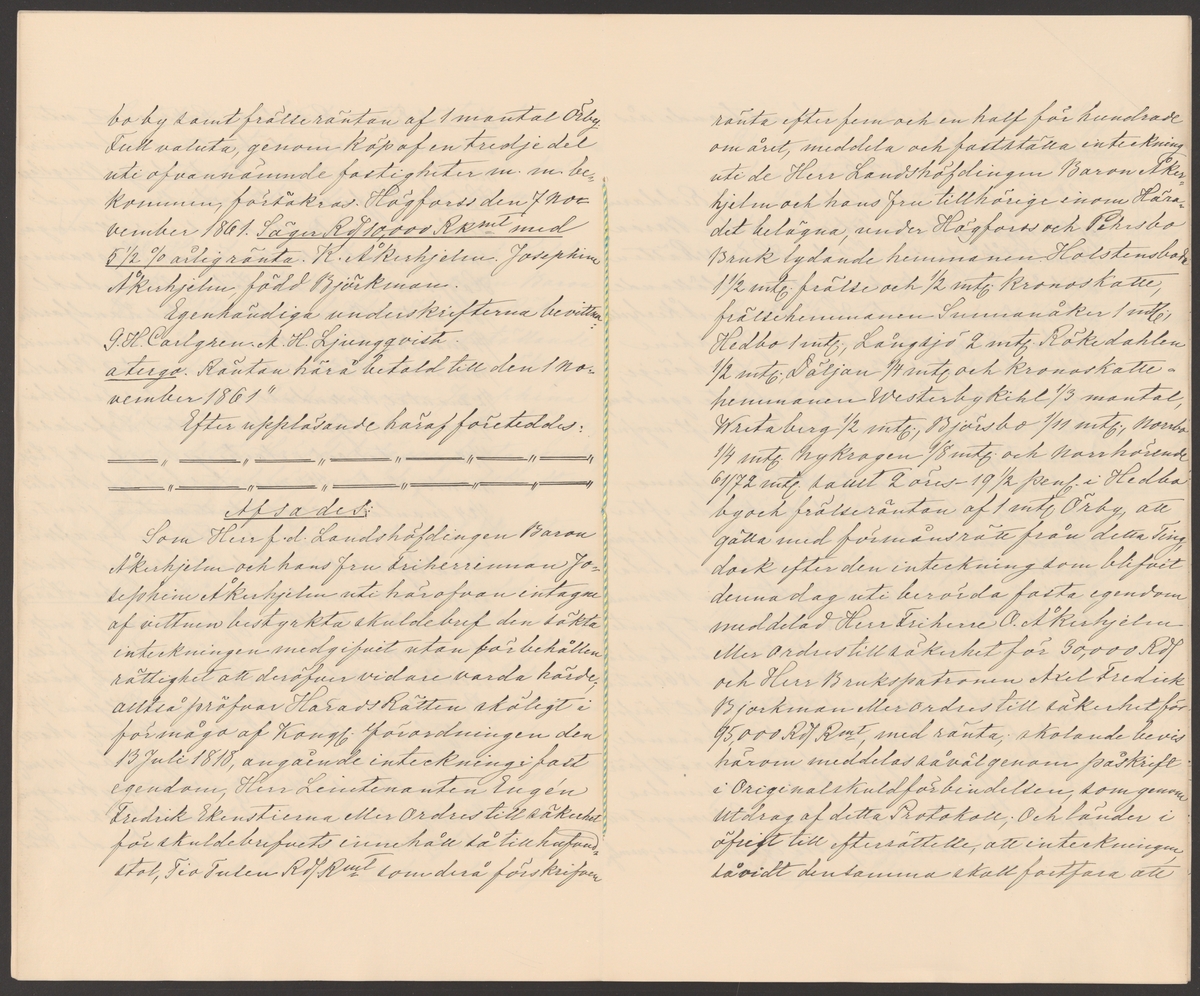 bo by samt frälse räntan af 1 mantal Örby
Full valuta, genom köp af en tredje del
uti ofvannämnde fastigheter m. m. be-
kommen, försäkras. Högforss den 7 No-
vember 1861. Säger Rd 10,000 Rkmt med
5 1/2 % årlig ränta. K. Åkerhjelm. Josephine
Åkerhjelm, född Björkman.
Egenhändiga underskrifterna bevittna
G. H. Carlgren. A. H. Ljungqvist.
a tergo. Räntan härå betald till den 1 No-
vember 1861"
Efter uppläsande häraf företeddes:
Afsades:
Som Herr f. d. Landshöfdingen Baron
Åkerhjelm och hans fru Friherrinnan Jo-
sephine Åkerhjelm uti härofvan intagne
af vittnen bestyrkta skuldebref den sökta
inteckningen medgifvit utan förbehållen
rättighet att deröfver vidare varda hörde,
altså pröfvar HäradsRätten skäligt i
förmågo af Kongl. Förordningen den
13 Juli 1818, angående inteckning i fast
egendom, Herr Leiutenanten Eugén
Fredrik Ekenstierna eller Ordres till säkerhet
för skuldebrefvets innehåll så till hufvud-
stol, Tio Tusen Rd Rmt som derå förskrifven
ränta efter fem och en half för hundrade
om året, meddela och fastställa inteckning
uti de Herr Landshöfdingen Baron Åker-
hjelm och hans fru tillhörige inom Hära-
det belägna, under Högforss och Pehrsbo
Bruk lydande hemmanen Holstensboda
1 1/2 mtl. frälse och 1/2 mtl. kronoskatte,
frälsehemmanen Sunnanåker 1 mtl,
Hedbo 1 mtl., Långsjö 2 mtl. Rökedahlen
1/2 mtl., Däljan 1/4 mtl och kronoskatte-
hemmanen Westerbykihl 1/3 mantal,
Wretaberg 1/2 mtl., Björsbo 1/11 mtl, Norrbo
1/4 mtl Nykrogen 1/8 mtl och Norrhörende
61/72 mtl samt 2 öres - 19 1/2 pen. i Hedbo
by och frälseräntan af 1 mtl Örby, att
gälla med förmånsrätt från detta Ting
dock efter den inteckning som blifvit
denna dag uti berörda fasta egendom
meddelad Herr Friherre O. Åkerhjelm
eller Ordres till säkerhet för 30,000 Rd
och Herr Brukspatronen Axel Fredrik
Björkman eller Ordres till säkerhet för
95,000 Rd Rmt, med ränta, skolande bevis
härom meddelas såväl genom påskrift
i Originalskuldförbindelsen, som genom
Utdrag af detta Protokoll; Och länder i
öfrigt till efterrättelse, att inteckningen
såvidt densamma skall fortfara att